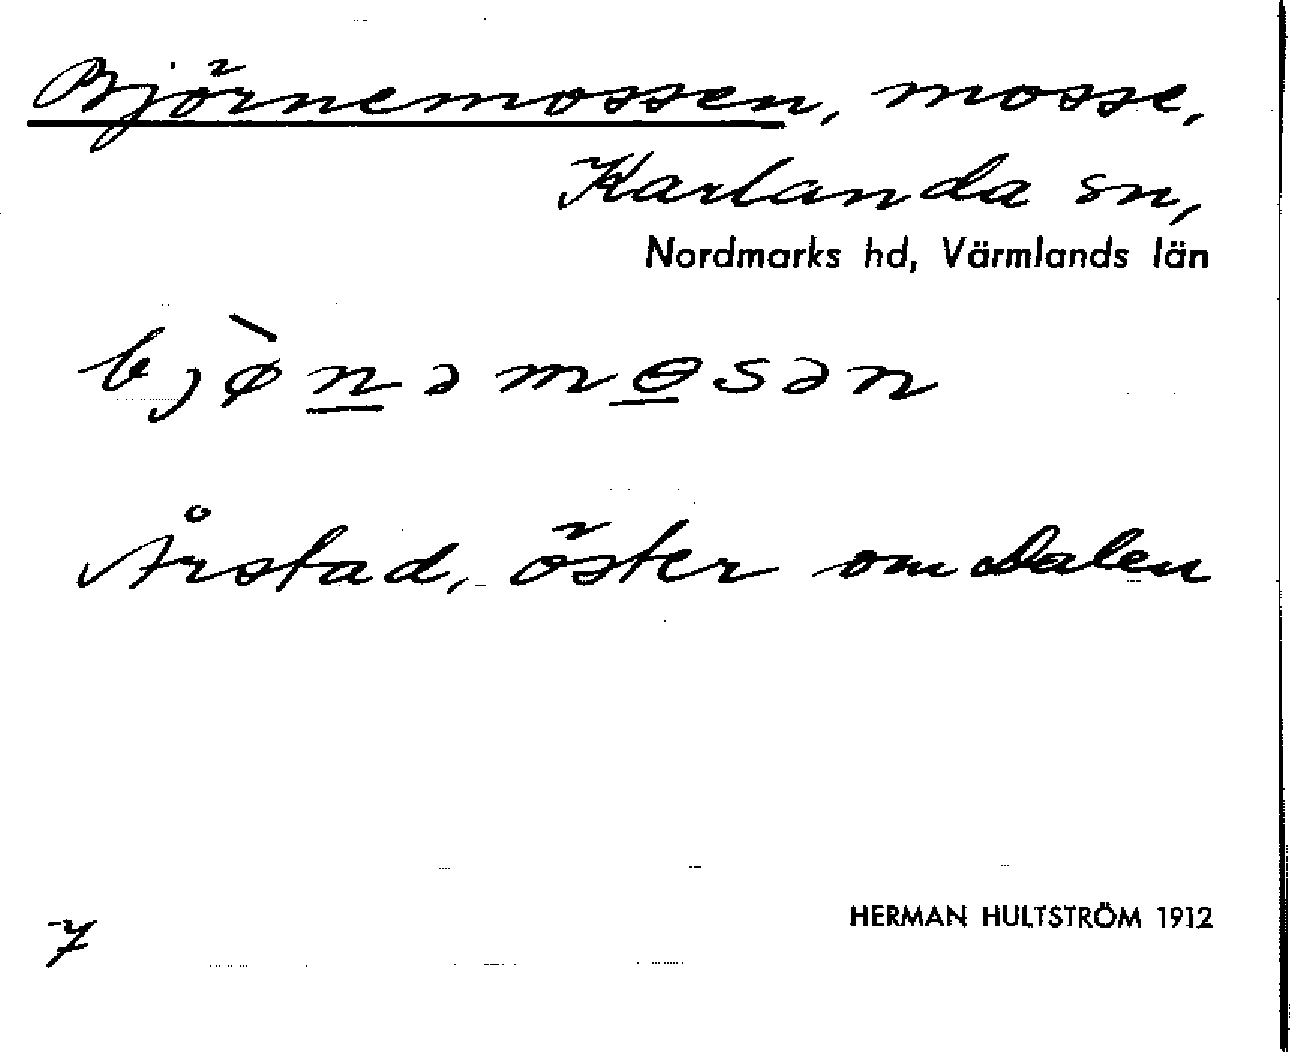 Björnemossen, mosse,
Karlanda sn,
Nordmarks hd, Värmlands län
bjø̀n̲əmɵ̲sən
Årstad, öster om Dalen
7
HERMAN HULTSTRÖM 1912